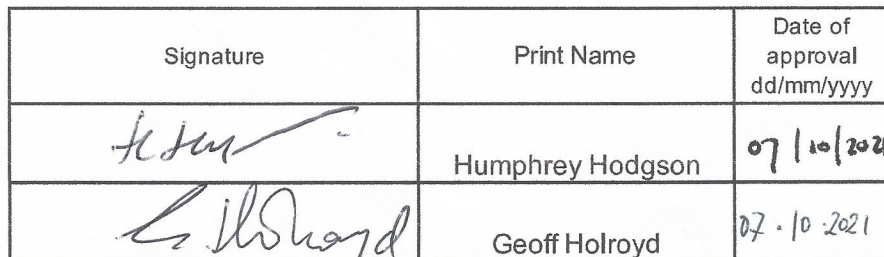 Signature
Print Name
Date of
approval
dd/mm/yyyy
Humphrey Hodgson
07/10/2021
G Holroyd
Geoff Holroyd
07.10.2021